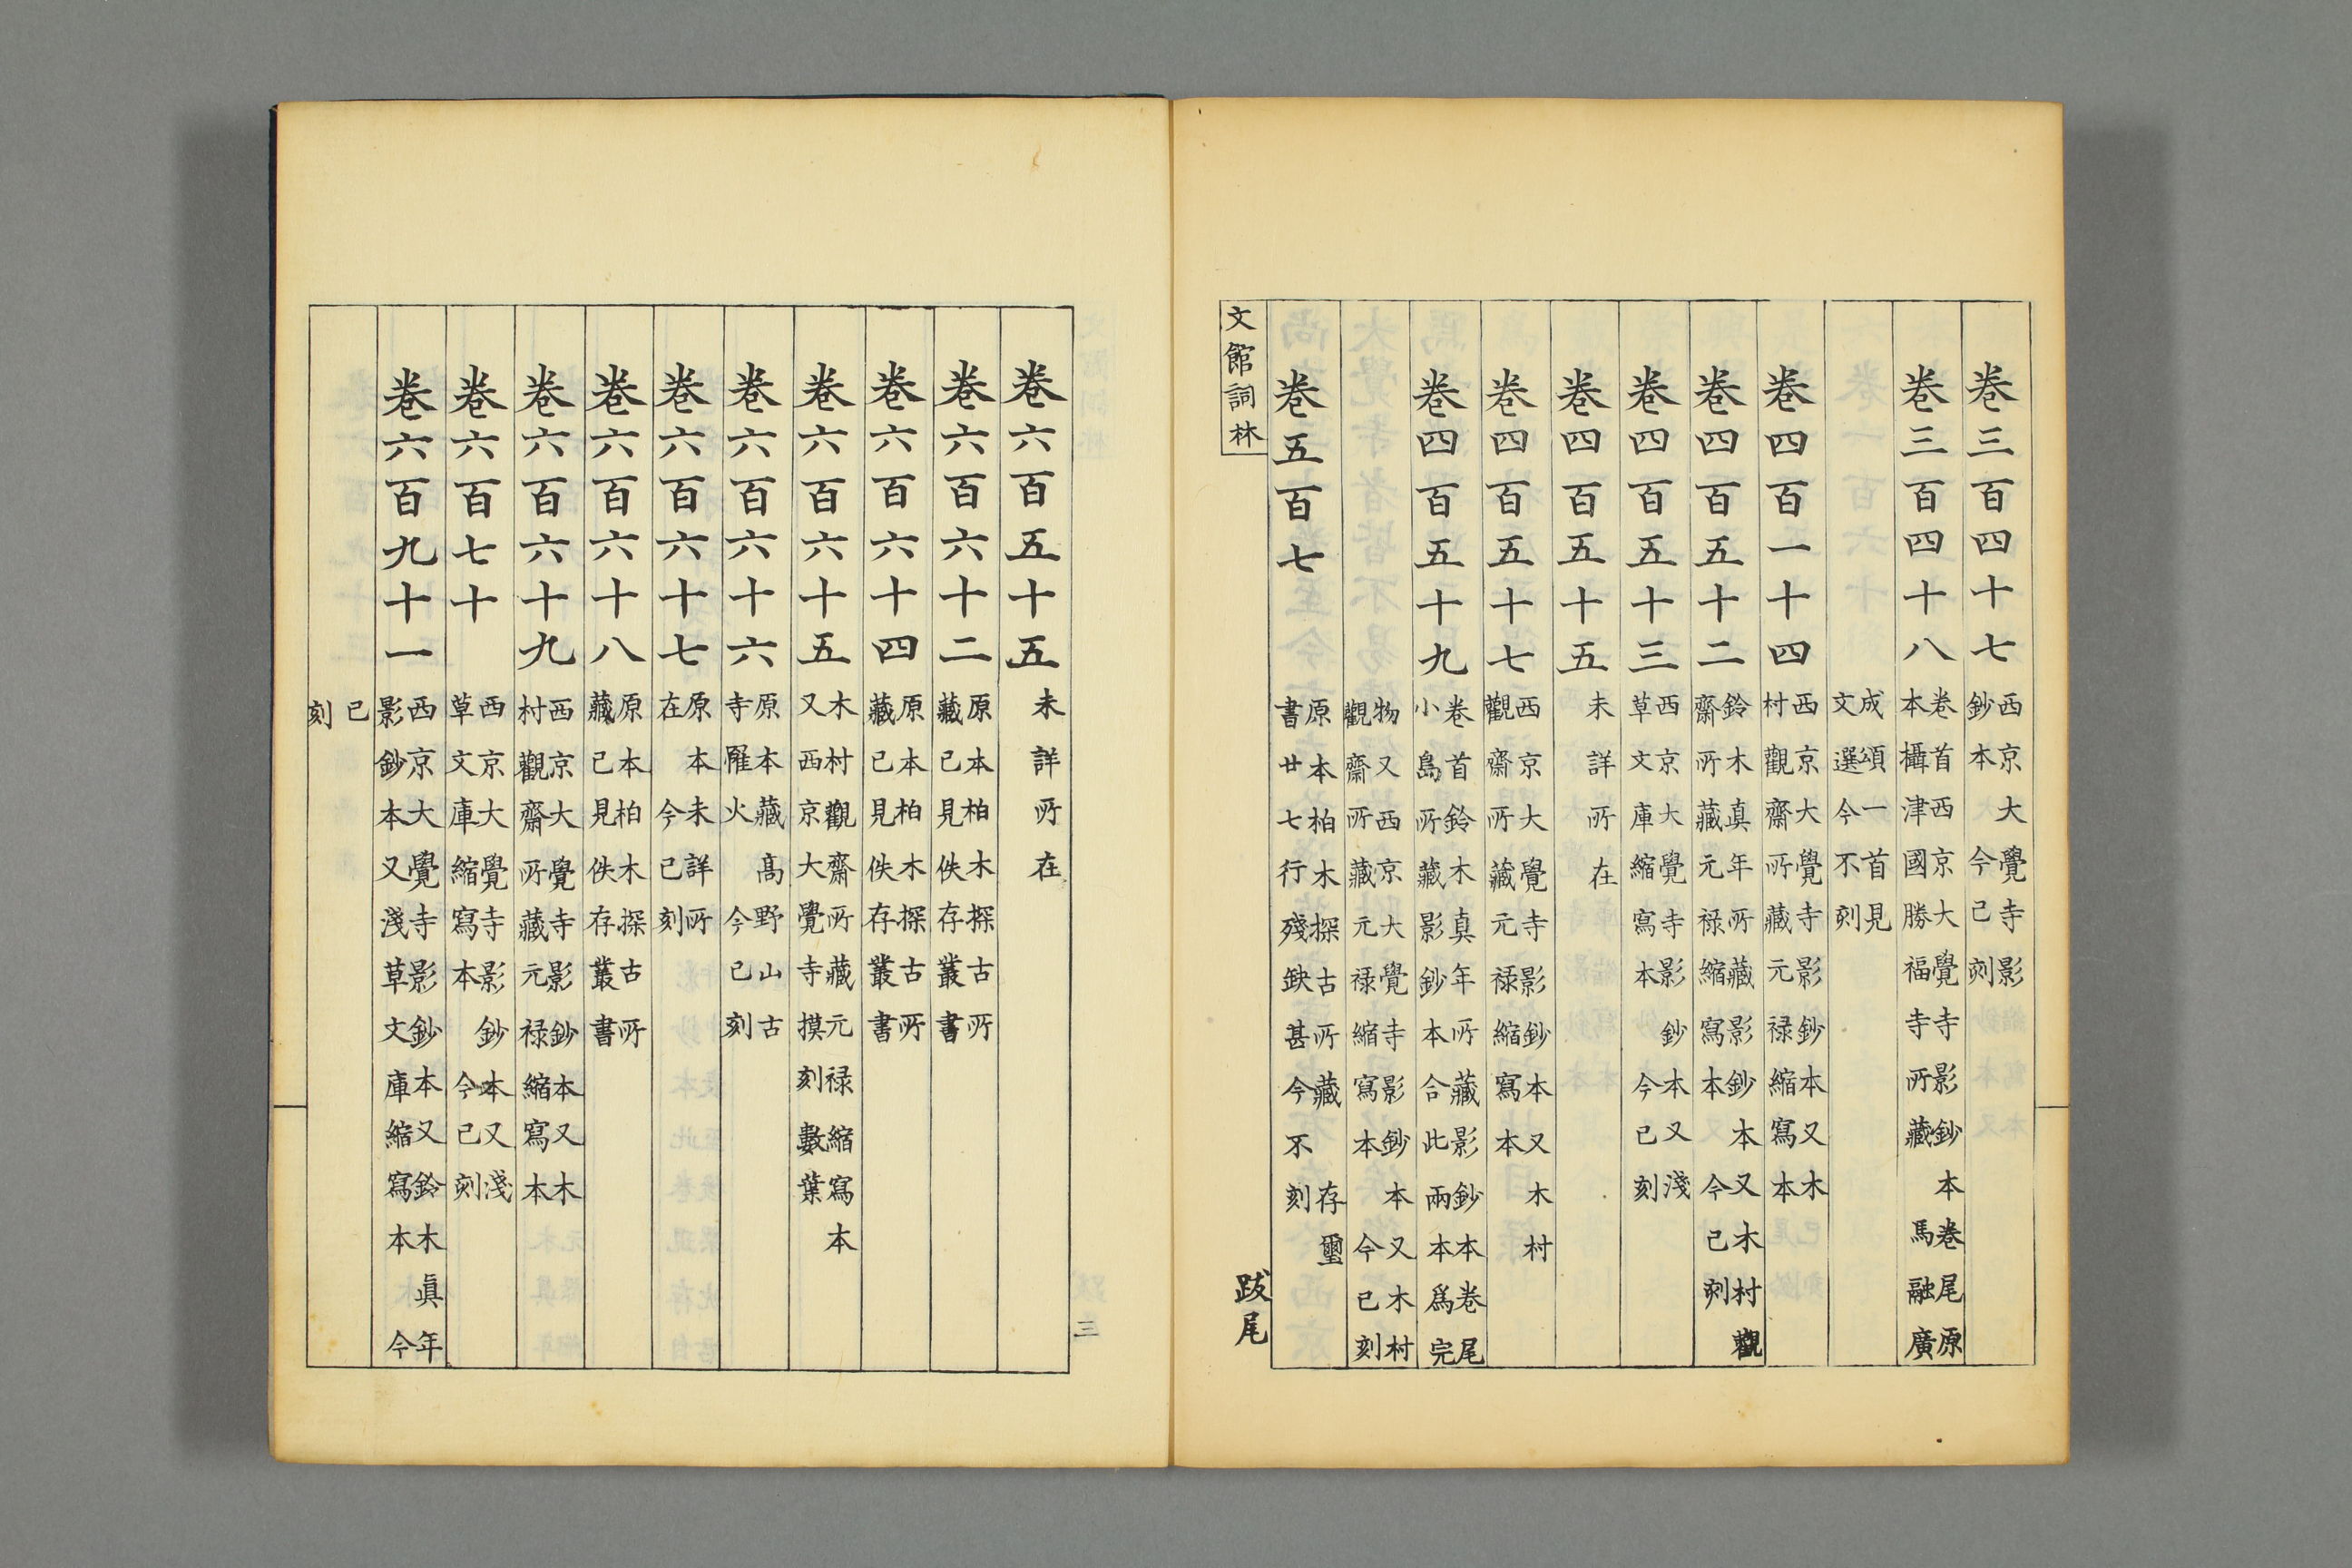 卷三百四十七
西京大覺寺影
鈔本今已刻
卷三百四十八
卷首西京大覺寺影鈔本卷尾原
本攝津國勝福寺所藏馬融廣
成頌一首見
文選今不刻
卷四百一十四
西京大覺寺影鈔本又木
村觀齋所藏元禄縮寫本
卷四百五十二
鈴木真年所藏影鈔本又木村觀
齋所藏元禄縮寫本今已刻
卷四百五十三
西京大覺寺影鈔本又淺
草文庫縮寫本今已刻
卷四百五十五
未詳所在
卷四百五十七
西京大覺寺影鈔本又木村
觀齋所藏元禄縮寫本
卷四百五十九
卷首鈴木真年所藏影鈔本卷尾
小島所藏影鈔本合此兩本爲完
物又西京大覺寺影鈔本又木村
觀齋所藏元禄縮寫本今已刻
卷五百七
原本柏木探古所藏存璽
書廿七行殘缺甚今不刻
文館詞林
跋尾
三
卷六百五十五
未詳所在
卷六百六十二
原本柏木探古所
藏已見佚存叢書
卷六百六十四
原本柏木探古所
藏已見佚存叢書
卷六百六十五
木村觀齋所藏元禄縮寫本
又西京大覺寺摸刻數葉
卷六百六十六
原本藏高野山古
寺罹火今已刻
卷六百六十七
原本未詳所
在今已刻
卷六百六十八
原本柏木探古所
藏已見佚存叢書
卷六百六十九
西京大覺寺影鈔本又木
村觀齋所藏元禄縮寫本
卷六百七十
西京大覺寺影鈔本又淺
草文庫縮寫本今已刻
卷六百九十一
西京大覺寺影鈔本又鈴木眞年
影鈔本又淺草文庫縮寫本今
已
刻